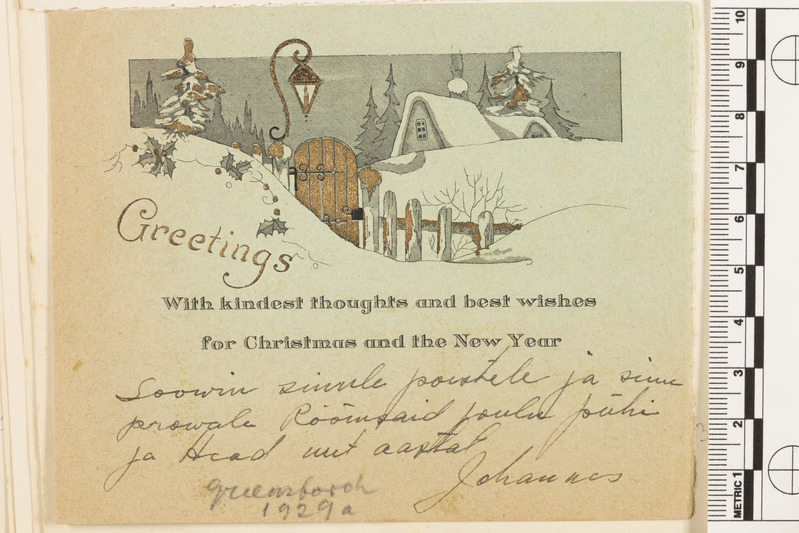 Greetings
With kindest thoughts and best wishes
for Christmas and the New Year
Soowin sinule poistele ja sinu
prowale Röömsaid joulu pühi
ja Head uut aastat
Johannes
Greensborch
1929 a
10
9
8
7
6
5
4
3
2
METRIC 1